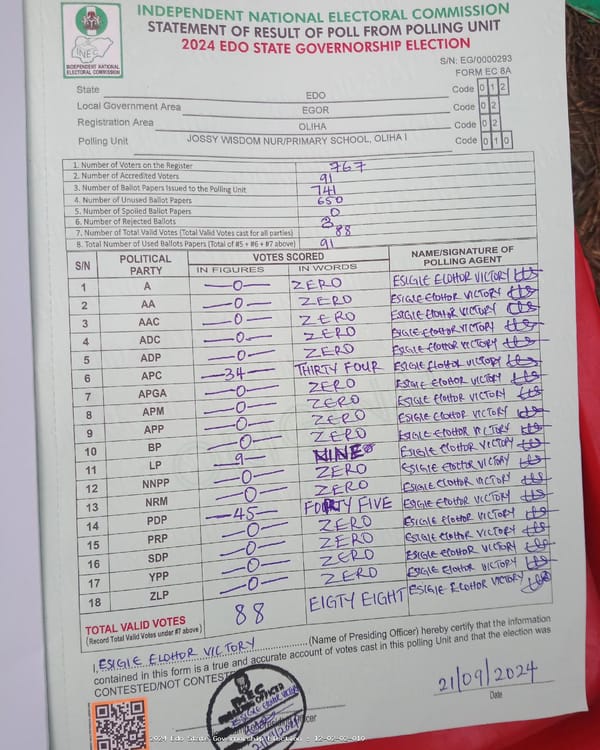 INDEPENDENT NATIONAL ELECTORAL COMMISSION
STATEMENT OF RESULT OF POLL FROM POLLING UNIT
2024 EDO STATE GOVERNORSHIP ELECTION
INEC
INDEPENDENT NATIONAL
ELECTORAL COMMISSION
S/N: EG/0000293
FORM EC 8A
State EDO Code 0 1 2
Local Government Area EGOR Code 0 2
Registration Area OLIHA Code 0 2
Polling Unit JOSSY WISDOM NUR/PRIMARY SCHOOL, OLIHA I Code 0 1 0
1. Number of Voters on the Register 767
2. Number of Accredited Voters 91
3. Number of Ballot Papers Issued to the Polling Unit 741
4. Number of Unused Ballot Papers 650
5. Number of Spoiled Ballot Papers 0
6. Number of Rejected Ballots 3
7. Number of Total Valid Votes (Total Valid Votes cast for all parties) 88
8. Total Number of Used Ballots Papers (Total of #5 + #6 + #7 above) 91
S/N POLITICAL PARTY VOTES SCORED NAME/SIGNATURE OF POLLING AGENT
IN FIGURES IN WORDS
1 A —0— ZERO ESIGIE ELOHOR VICTORY
2 AA —0— ZERO ESIGIE ELOHOR VICTORY
3 AAC —0— ZERO ESIGIE ELOHOR VICTORY
4 ADC —0— ZERO ESIGIE ELOHOR VICTORY
5 ADP —0— ZERO ESIGIE ELOHOR VICTORY
6 APC —34— THIRTY FOUR ESIGIE ELOHOR VICTORY
7 APGA —0— ZERO ESIGIE ELOHOR VICTORY
8 APM —0— ZERO ESIGIE ELOHOR VICTORY
9 APP —0— ZERO ESIGIE ELOHOR VICTORY
10 BP —0— ZERO ESIGIE ELOHOR VICTORY
11 LP —9— NINE ESIGIE ELOHOR VICTORY
12 NNPP —0— ZERO ESIGIE ELOHOR VICTORY
13 NRM —0— ZERO ESIGIE ELOHOR VICTORY
14 PDP —45— FORTY FIVE ESIGIE ELOHOR VICTORY
15 PRP —0— ZERO ESIGIE ELOHOR VICTORY
16 SDP —0— ZERO ESIGIE ELOHOR VICTORY
17 YPP —0— ZERO ESIGIE ELOHOR VICTORY
18 ZLP —0— ZERO ESIGIE ELOHOR VICTORY
TOTAL VALID VOTES 88 EIGTY EIGHT
(Record Total Valid Votes under #7 above)
I, ESIGIE ELOHOR VICTORY (Name of Presiding Officer) hereby certify that the information
contained in this form is a true and accurate account of votes cast in this polling Unit and that the election was
CONTESTED/NOT CONTESTED
21/09/2024
Date
2024 Edo State Governorship Election - 12-02-02-010